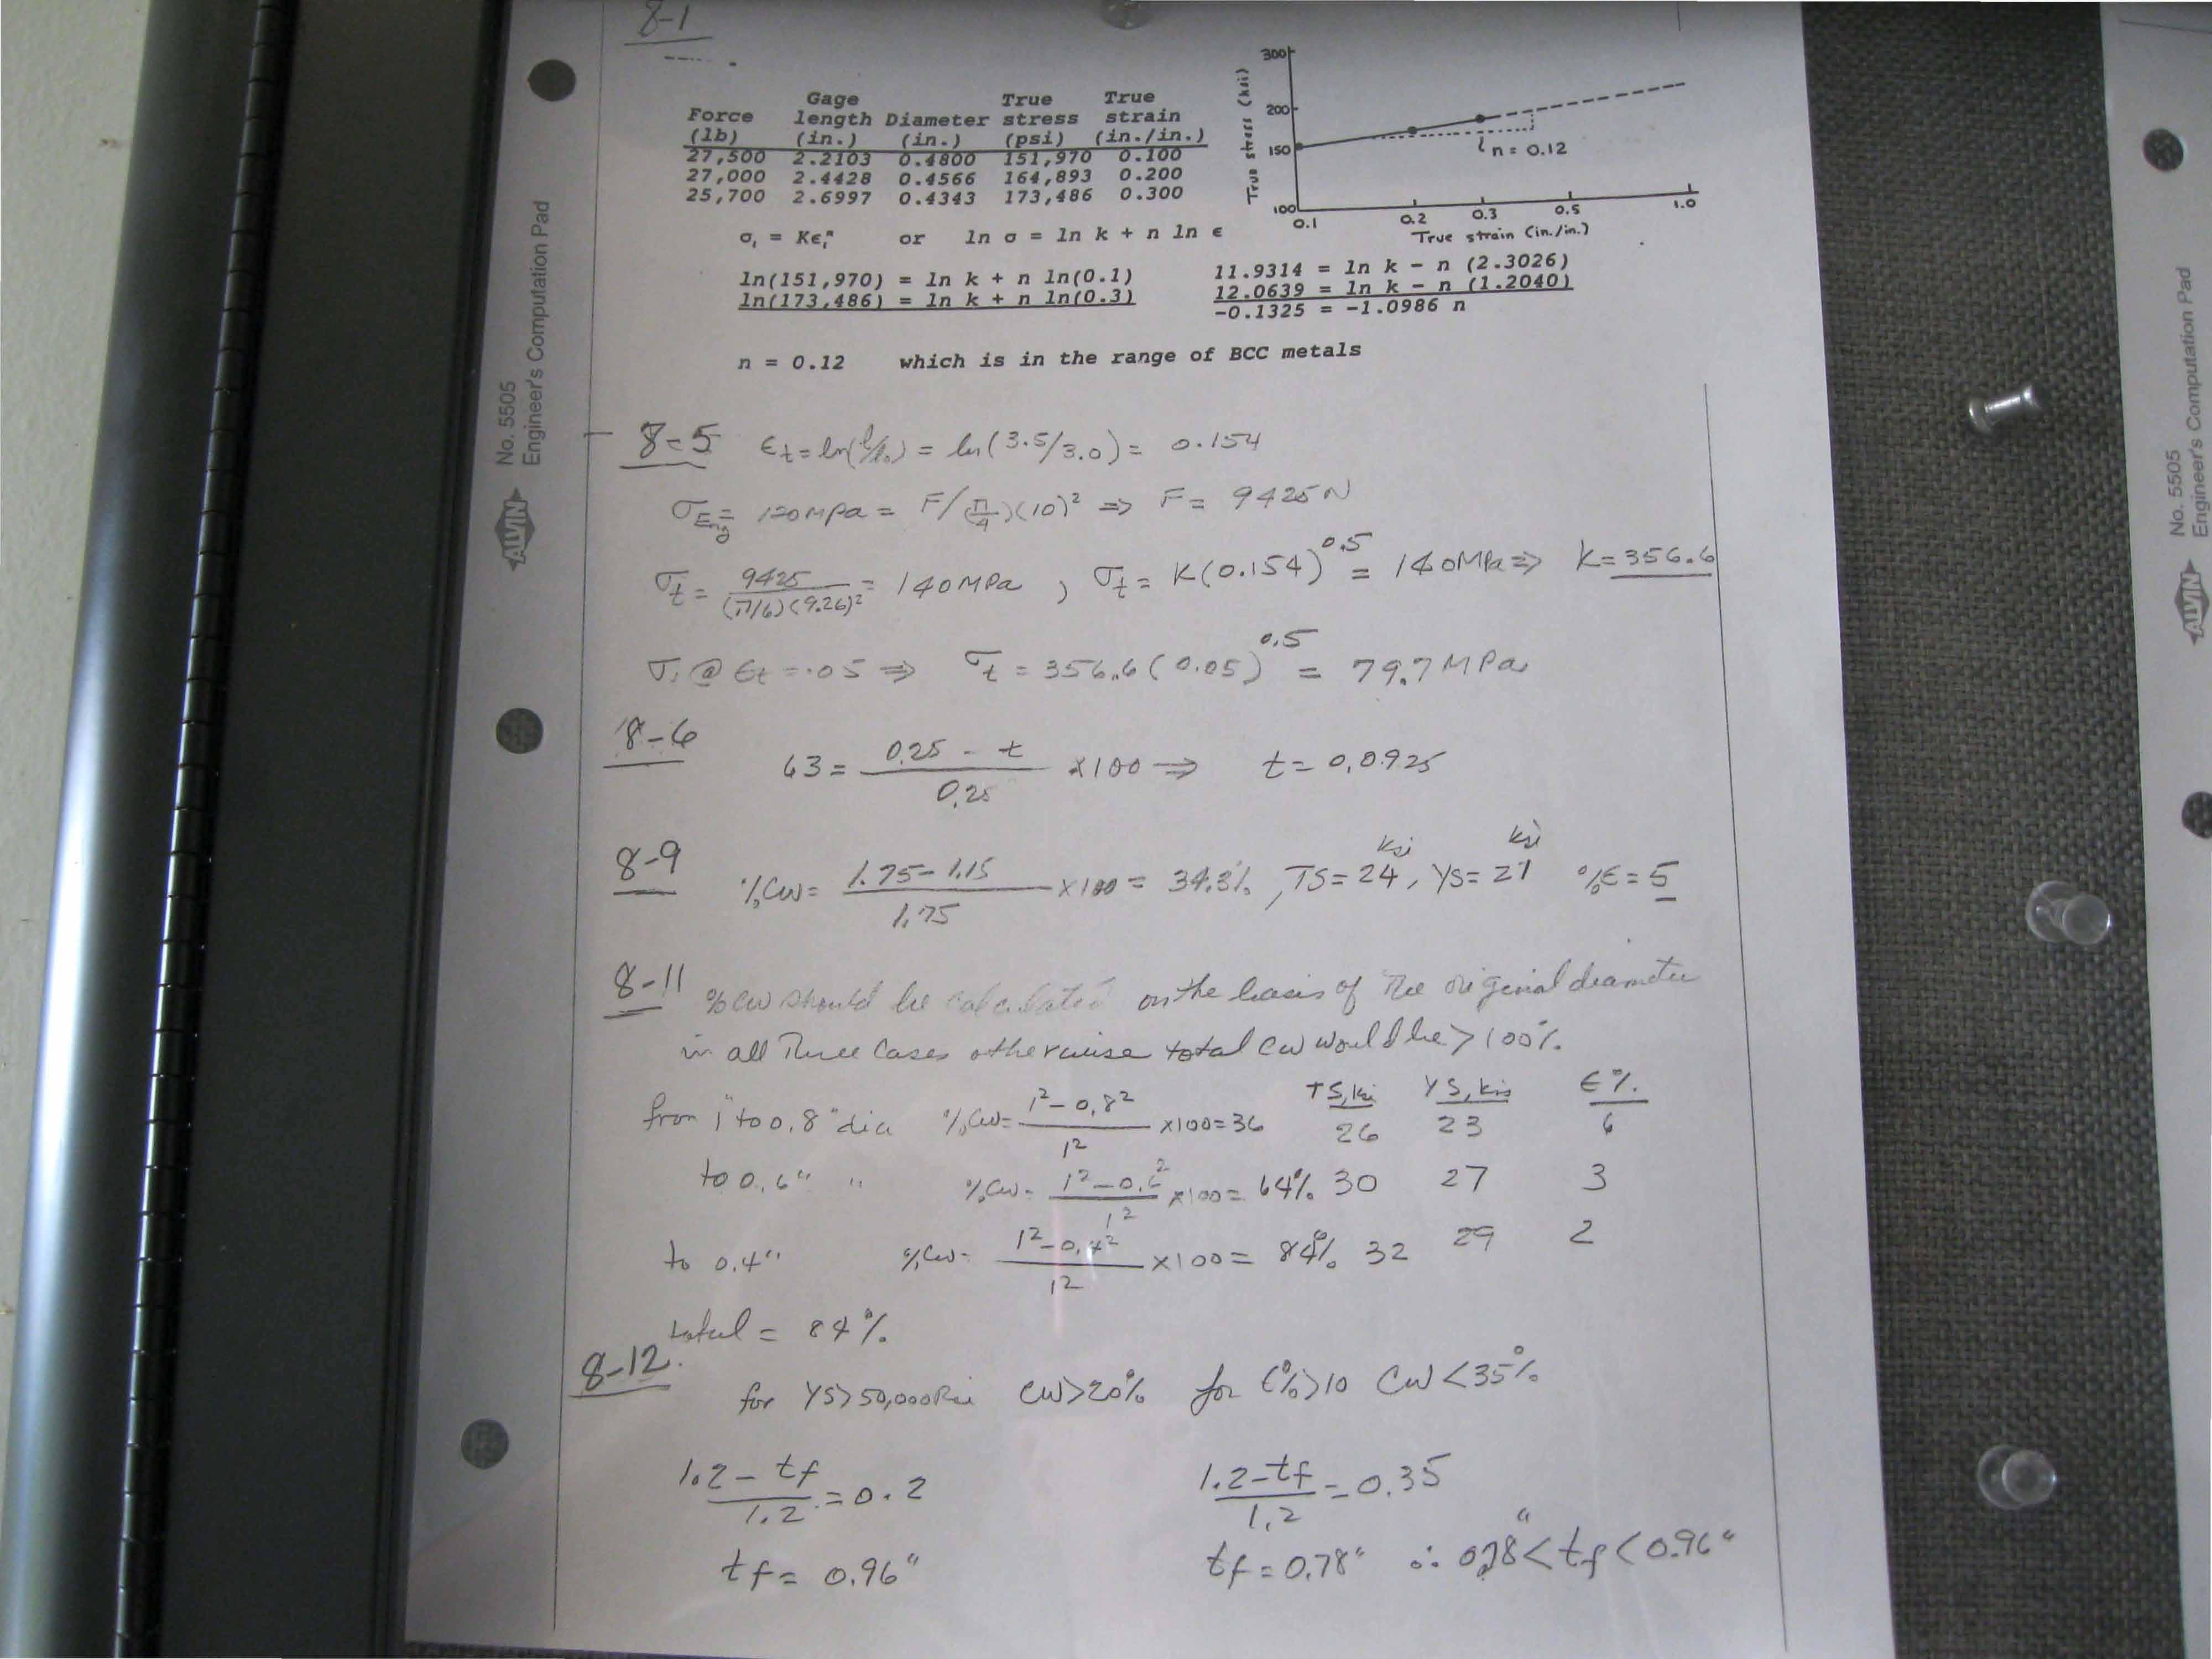 8-1
Force (lb) | Gage length (in.) | Diameter (in.) | True stress (psi) | True strain (in./in.)
27,500 2.2103 0.4800 151,970 0.100
27,000 2.4428 0.4566 164,893 0.200
25,700 2.6997 0.4343 173,486 0.300
True stress (ksi)
300
200
150
100
n = 0.12
0.1 0.2 0.3 0.5 1.0
True strain (in./in.)
σₜ = Kεₜⁿ or ln σ = ln k + n ln ε
ln(151,970) = ln k + n ln(0.1)
ln(173,486) = ln k + n ln(0.3)
11.9314 = ln k - n (2.3026)
12.0639 = ln k - n (1.2040)
-0.1325 = -1.0986 n
n = 0.12 which is in the range of BCC metals
8-5 εt = ln(l/l₀) = ln(3.5/3.0) = 0.154
σEng = 120MPa = F/(π/4)(10)² ⇒ F = 9425N
σt = 9425/(π/4)(9.26)² = 140MPa, σt = K(0.154)^0.5 = 140MPa ⇒ K=356.6
σt @ εt = .05 ⇒ σt = 356.6(0.05)^0.5 = 79.7MPa
8-6
63 = (0.25 - t)/0.25 ×100 ⇒ t = 0.0925
8-9
%CW = (1.75-1.15)/1.75 ×100 = 34.3%, TS = 24 ksi, YS = 21 ksi %E = 5
8-11 %CW should be calculated on the basis of the original diameter
in all three cases otherwise total CW would be >100%.
TS,ksi YS,ksi E%
from 1" to 0.8" dia %CW = (1²-0.8²)/1² ×100=36 26 23 6
to 0.6" " %CW = (1²-0.6²)/1² ×100= 64% 30 27 3
to 0.4" %CW = (1²-0.4²)/1² ×100= 84% 32 29 2
total = 84%
8-12.
for YS>50,000Psi CW>20% for E%>10 CW<35%
(1.2-tf)/1.2 = 0.2
(1.2-tf)/1.2 = 0.35
tf = 0.96"
tf = 0.78" ∴ 0.78"<tf<0.96"
ALVIN No. 5505
Engineer's Computation Pad
ALVIN No. 5505
Engineer's Computation Pad